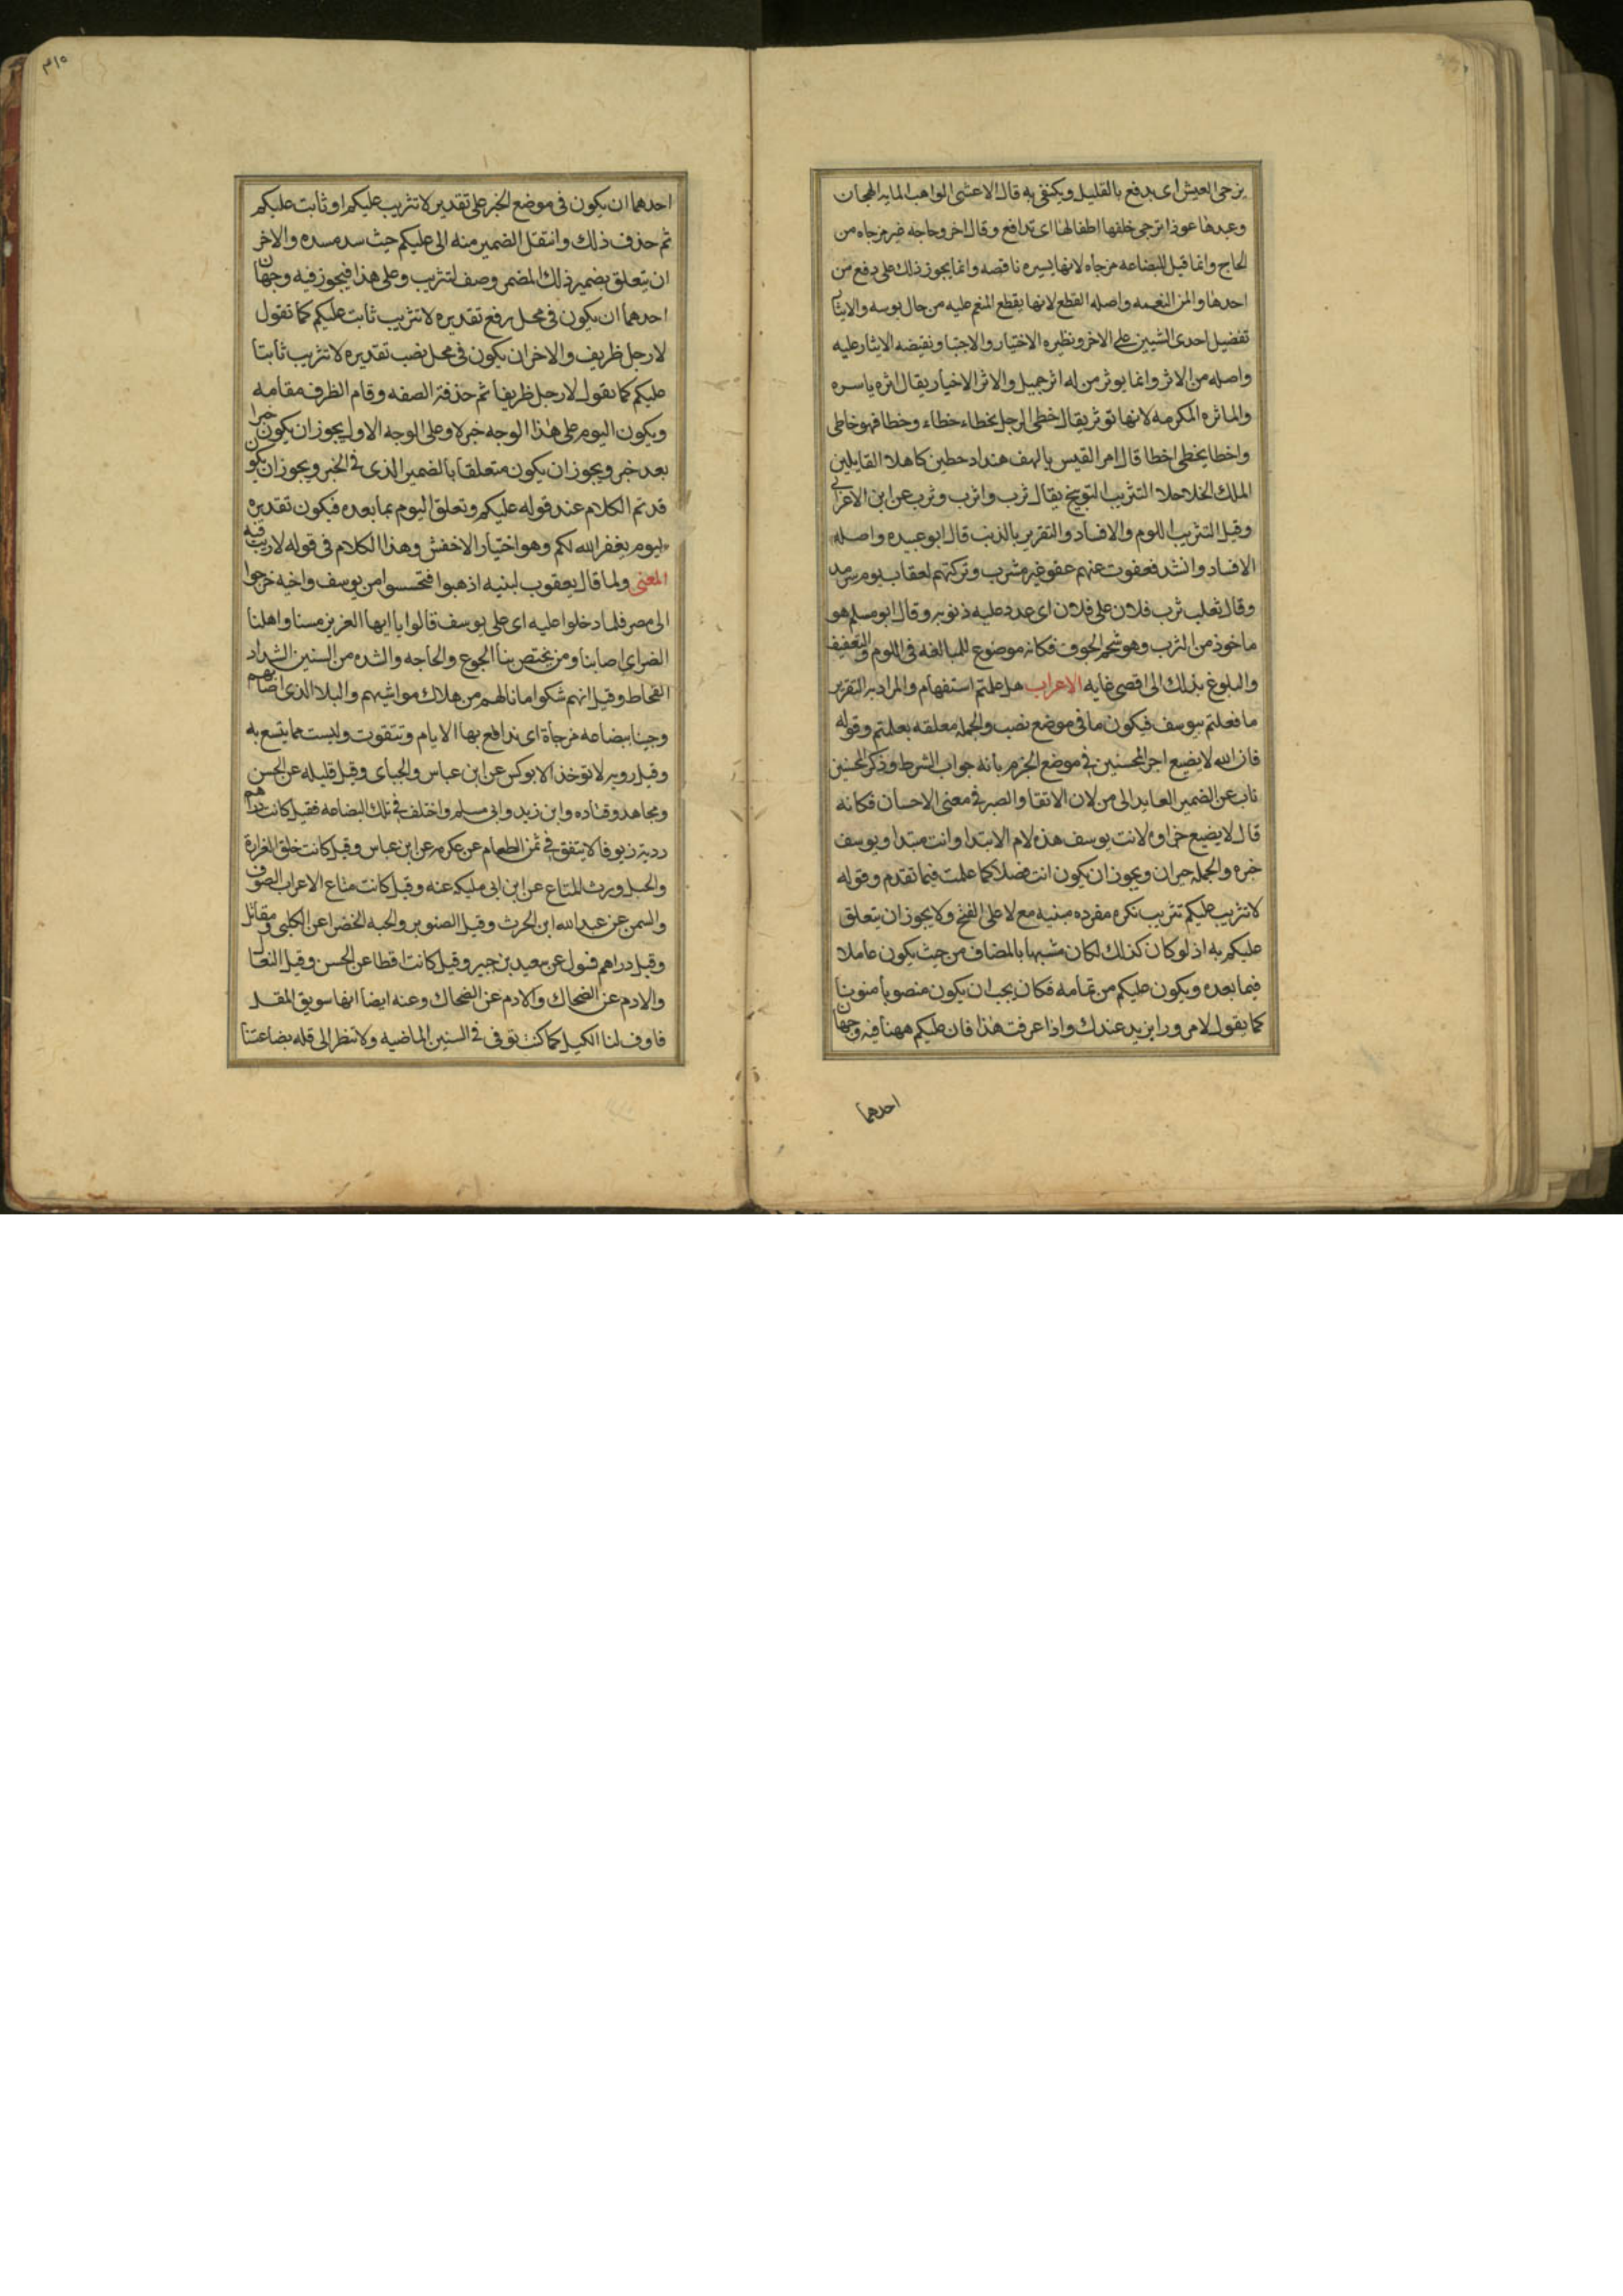 يزجى العيش اى يدفع بالقليل ويكتفى به قال الاعشى الواهب المايه الهجان
وعبدها عوذا تزجى خلفها اطفالها اى تدافع وقال اخر وحاجه غير مزجاه من
الحاج وانما قيل للبضاعه مزجاه لانها يسيره ناقصه وانما يجوز ذلك على دفع من
احدها والمن النعمه واصله القطع لانها يقطع المنعم عليه من حال بوسه والايثار
تفضيل احدى الشيين على الاخر ونظيره الاختيار والاجتبا ونقيضه الايثار عليه
واصله من الاثر وانما يوثر من له اثر جميل والاثر الاخيار يقال اثره ياسره
والماثره المكرمه لانها توثر يقال خطى الرجل يخطاء خطاء وخطا فهو خاطى
واخطا يخطى اخطا قال امر القيس يالهف هند اد خطين كاهلا القايلين
الملك الحلاحلا التثريب التوبيخ يقال ثرب واثرب وثرب عن ابن الاعرابى
وقيل التثريب اللوم والافساد والتقرير بالذنب قال ابو عبيده واصله
الافساد وانشد فعفوت عنهم عفو غير مثرب وتركتهم لعقاب يوم سرمد
وقال ثعلب ثرب فلان على فلان اى عدد عليه ذنوبه وقال ابو مسلم هو
ماخوذ من الثرب وهو شحم الجوف فكانه موضوع للمبالغه فى اللوم والتعفيف
والبلوغ بذلك الى اقصى غايه الاعراب هل علمتم استفهام والمراد به التقرير
ما فعلتم بيوسف فيكون ما فى موضع نصب والجمله معلقه بعلمتم وقوله
فان الله لا يضيع اجر المحسنين فى موضع الجزم بانه جواب الشرط وذكر المحسنين
ناب عن الضمير العايد الى من لان الاتقا والصبر فى معنى الاحسان فكانه
قال لا يضيع جزاوه لانت يوسف هذه لام الابتدا وانت مبتدا ويوسف
خبره والجمله خبر ان ويجوز ان يكون انت فصلا كما علمت فيما تقدم وقوله
لا تثريب عليكم تثريب نكره مفرده مبنيه مع لا على الفتح ولا يجوز ان يتعلق
عليكم به اذ لو كان كذلك لكان مشبها بالمضاف من حيث يكون عاملا
فيما بعده ويكون عليكم من تمامه فكان يجب ان يكون منصوبا منونا
كما يقول لا مرورا بزيد عندك واذا عرفت هذا فان عليكم مهنا فيه وجهان
احدهما
٣١٥
احدهما ان يكون فى موضع الخبر على تقدير لا تثريب عليكم او ثابت عليكم
ثم حذف ذلك وانتقل الضمير منه الى عليكم حيث سد مسده والاخر
ان يتعلق بضمير ذلك المضمر وصف لتثريب وعلى هذا فيجوز فيه وجهان
احدهما ان يكون فى محل رفع تقديره لا تثريب ثابت عليكم كما تقول
لا رجل ظريف والاخر ان يكون فى محل نصب تقديره لا تثريب ثابتا
عليكم كما تقول لا رجل ظريفا ثم حذفت الصفه وقام الظرف مقامه
ويكون اليوم على هذا الوجه خبر لا وعلى الوجه الاول يجوز ان يكون خبرا
بعد خبر ويجوز ان يكون متعلقا بالضمير الذى فى الخبر ويجوز ان يكون
قد تم الكلام عند قوله عليكم وتعلق اليوم بما بعده فيكون تقديره
اليوم يغفر الله لكم وهو اختيار الاخفش وهذا الكلام فى قوله لا ريب فيه
المعنى ولما قال يعقوب لبنيه اذهبوا فتحسسوا من يوسف واخيه خرجوا
الى مصر فلما دخلوا عليه اى على يوسف قالوا يا ايها العزيز مسنا واهلنا
الضر اى اصابنا ومن يختص بنا الجوع والحاجه والشده من السنين الشداد
القحاط وقيل انهم شكوا ما نالهم من هلاك مواشيهم والبلا الذى اصابهم
وجينا ببضاعه مزجاة اى ندافع بها الايام وتتقوت وليست مما يتسع به
وقيل رديه لا توخذ الا بوكس عن ابن عباس والجباى وقيل قليله عن الحسن
ومجاهد وقتاده وابن زيد وابى مسلم واختلف فى تلك البضاعه فقيل كانت دراهم
رديه زيوفا لا يتفق فى ثمن الطعام عن عكرمه عن ابن عباس وقيل كانت خلق الغرارة
والحبل ورث المتاع عن ابن ابى مليكه عنه وقيل كانت متاع الاعراب الصوف
والسمن عن عبد الله ابن الحرث وقيل الصنوبر والحبه الخضرا عن الكلبى ومقاتل
وقيل دراهم فسول عن سعيد بن جبير وقيل كانت اقطا عن الحسن وقيل النعال
والادم عن الضحاك والادم عن الضحاك وعنه ايضا انها سويق المقل
فاوف لنا الكيل كما كنت توفى فى السنين الماضيه ولا تنظر الى قله بضاعتنا